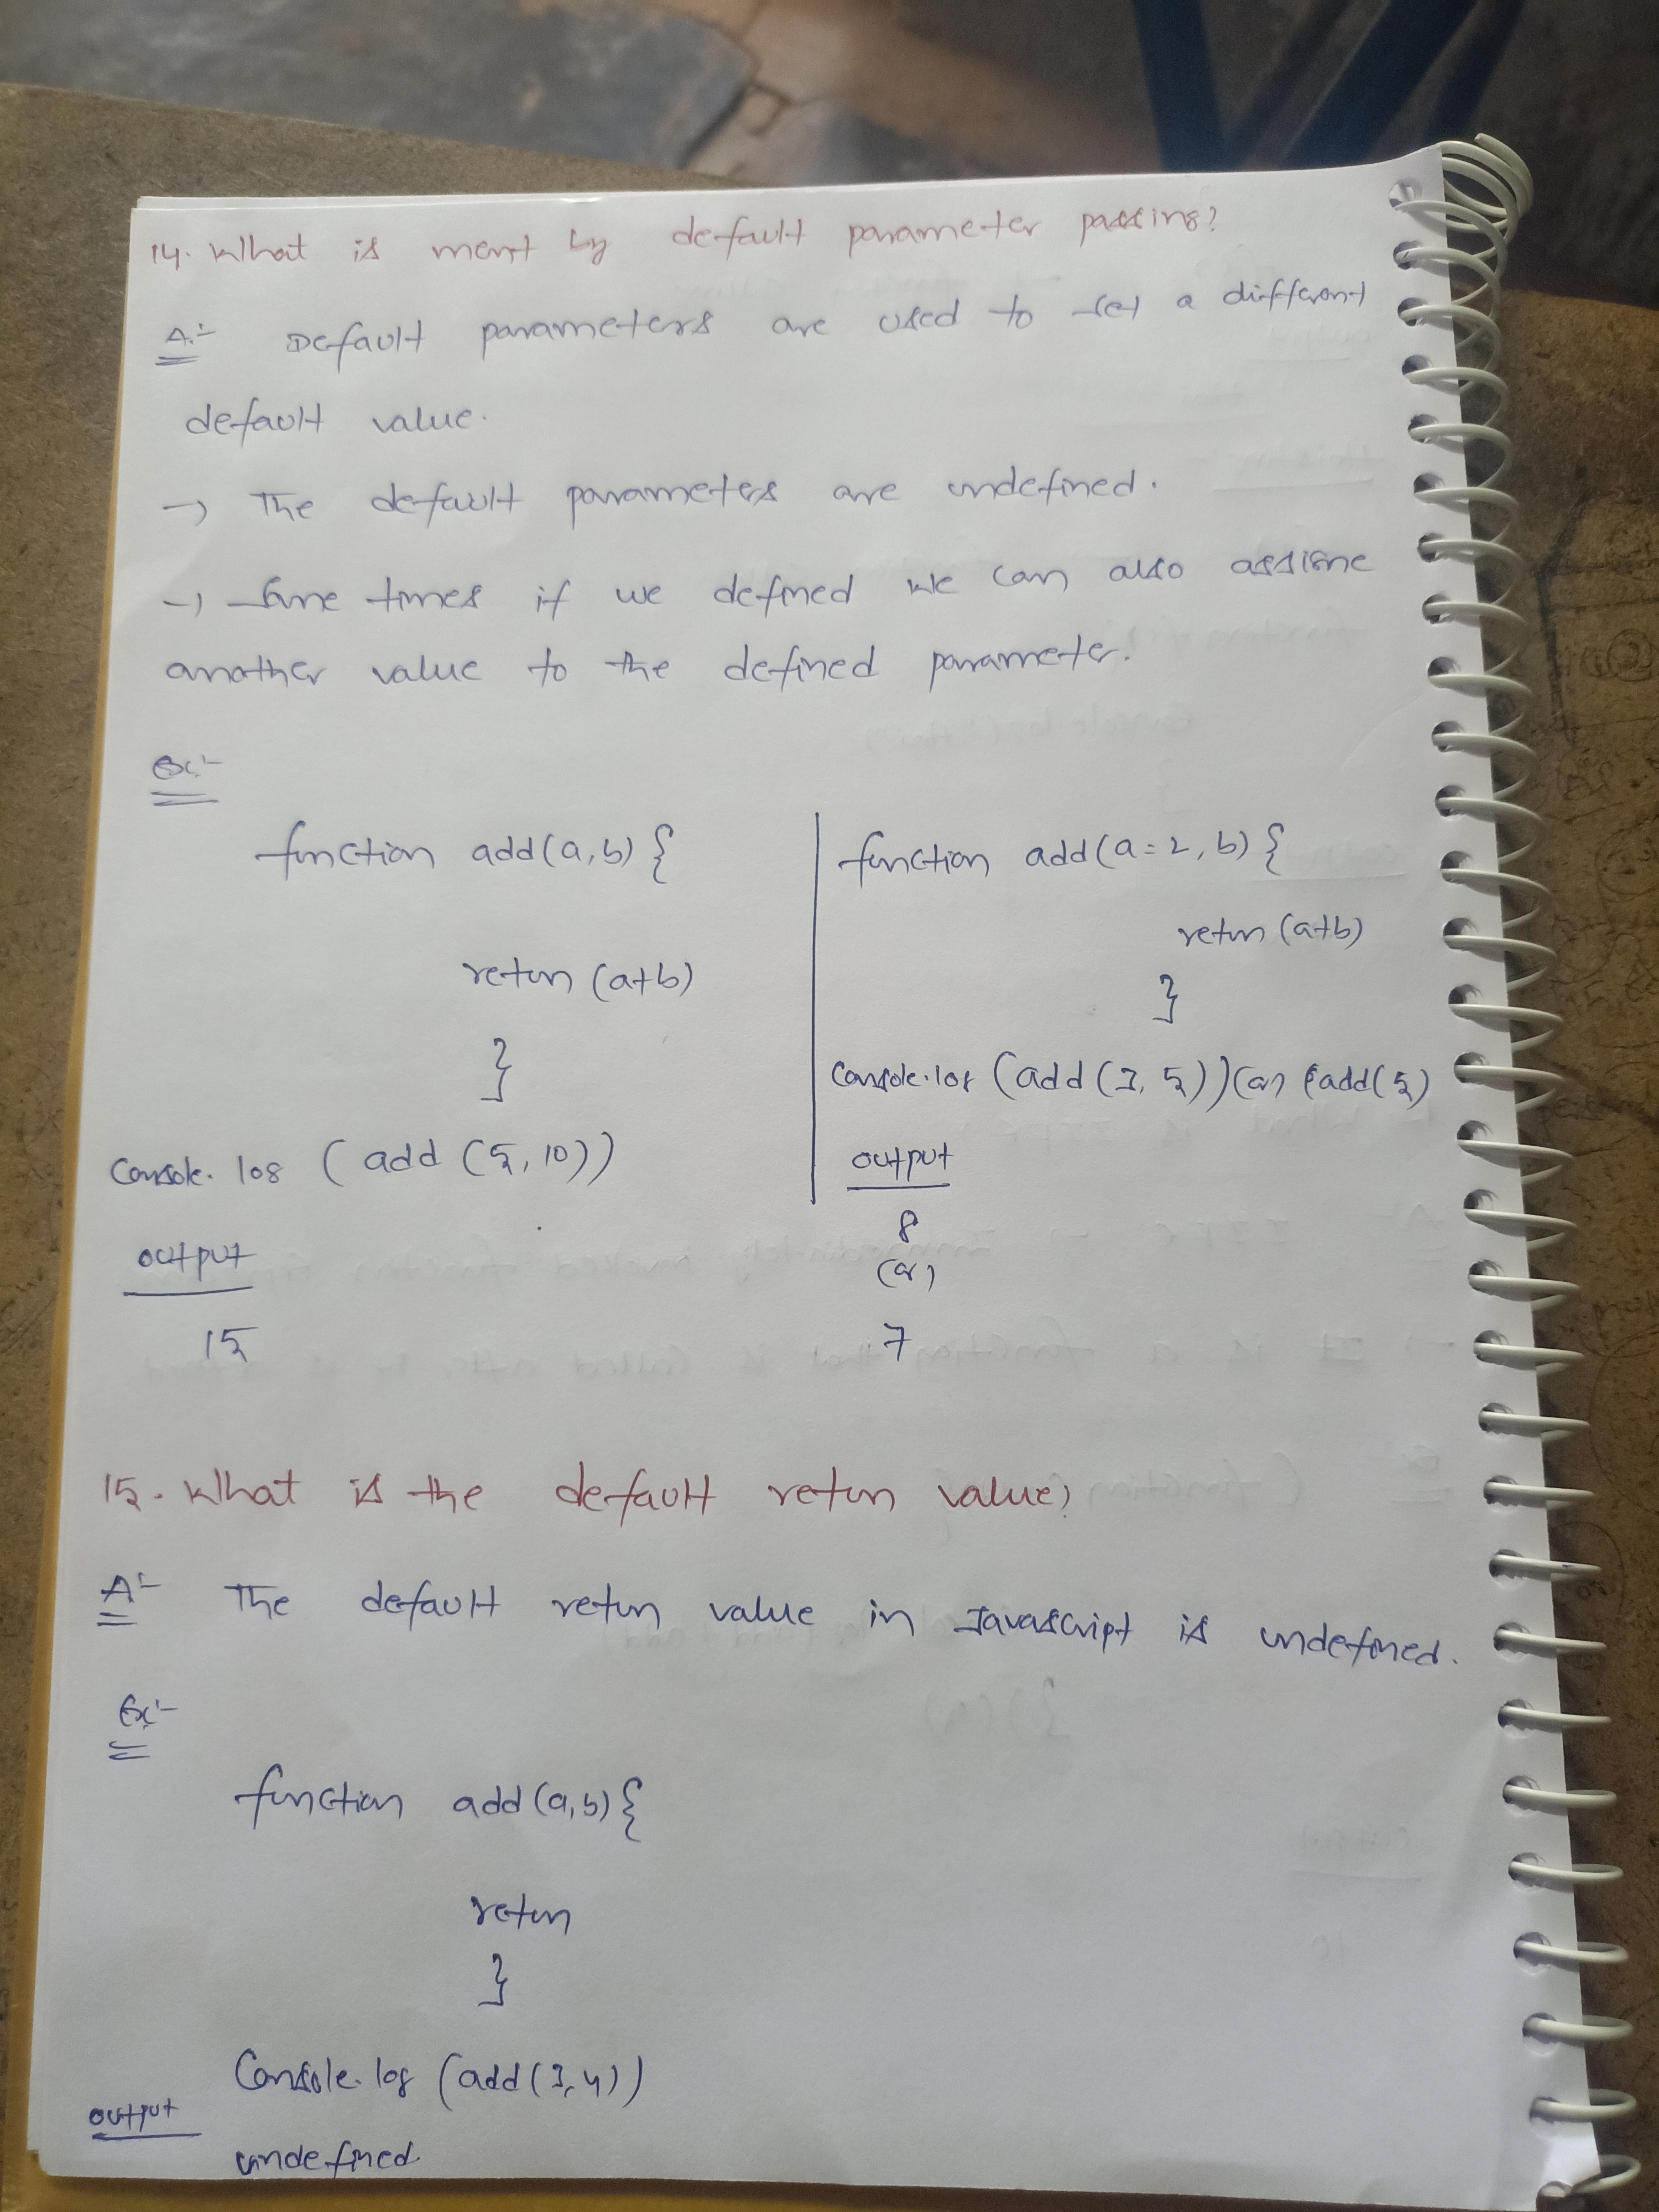 14. What is ment by default parameter passing?
A:- Default parameters are used to set a different
default value.
→ The default parameters are undefined.
→ Some times if we defined we can also assigne
another value to the defined parameter.
Ex:-
function add(a,b) {
return (a+b)
}
Console.log (add (5,10))
output
15
function add(a=2, b) {
return (a+b)
}
Console.log (add (3, 5)) (or) (add(5)
output
8
(or)
7
15. What is the default return value?
A:- The default return value in Javascript is undefined.
Ex:-
function add (a,b) {
return
}
Console.log (add (3,4))
output
undefined